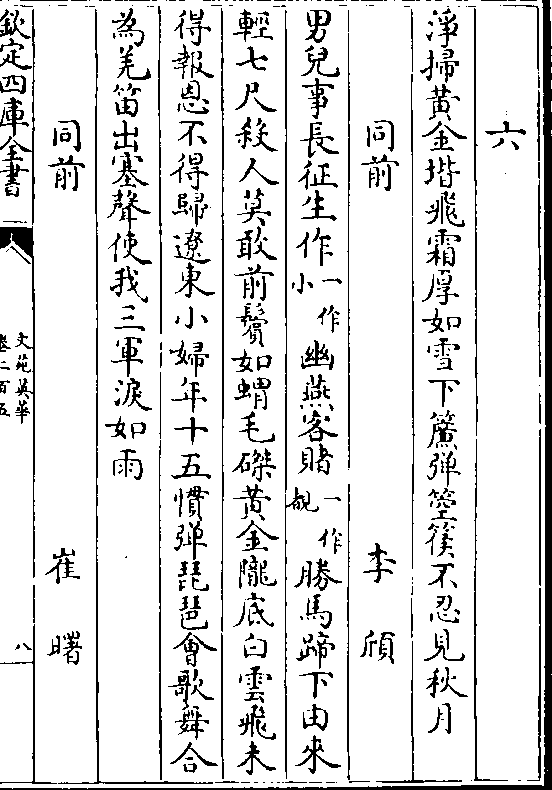 六
淨掃黃金堦飛霜厚如雪下簾彈箜篌不忍見秋月
同前 李頎
男兒事長征生作一作小幽燕客賭一作覩勝馬蹄下由來
輕七尺殺人莫敢前鬢如蝟毛磔黃金隴底白雲飛未
得報恩不得歸遼東小婦年十五慣彈琵琶會歌舞合
為羌笛出塞聲使我三軍淚如雨
同前 崔曙
欽定四庫全書
文苑英華
卷二百五
八